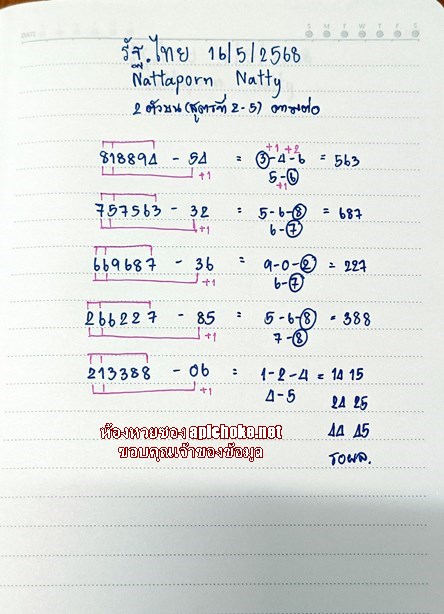 รัฐ.ไทย 16/5/2568
Nattaporn Natty
2 ตัวบน (สูตรที่ 2-5) ตามต่อ
+1 +2
818894 - 54 = 3-4-6 = 563
+1 5-6
+1
757563 - 32 = 5-6-8 = 687
+1 6-7
669687 - 36 = 9-0-2 = 227
+1 6-7
266227 - 85 = 5-6-8 = 388
+1 7-8
213388 - 06 = 1-2-4 = 14 15
+1 4-5 24 25
44 45
รอผล.
ห้องหวยซอง aplchoke.net
ขอบคุณเจ้าของข้อมูล